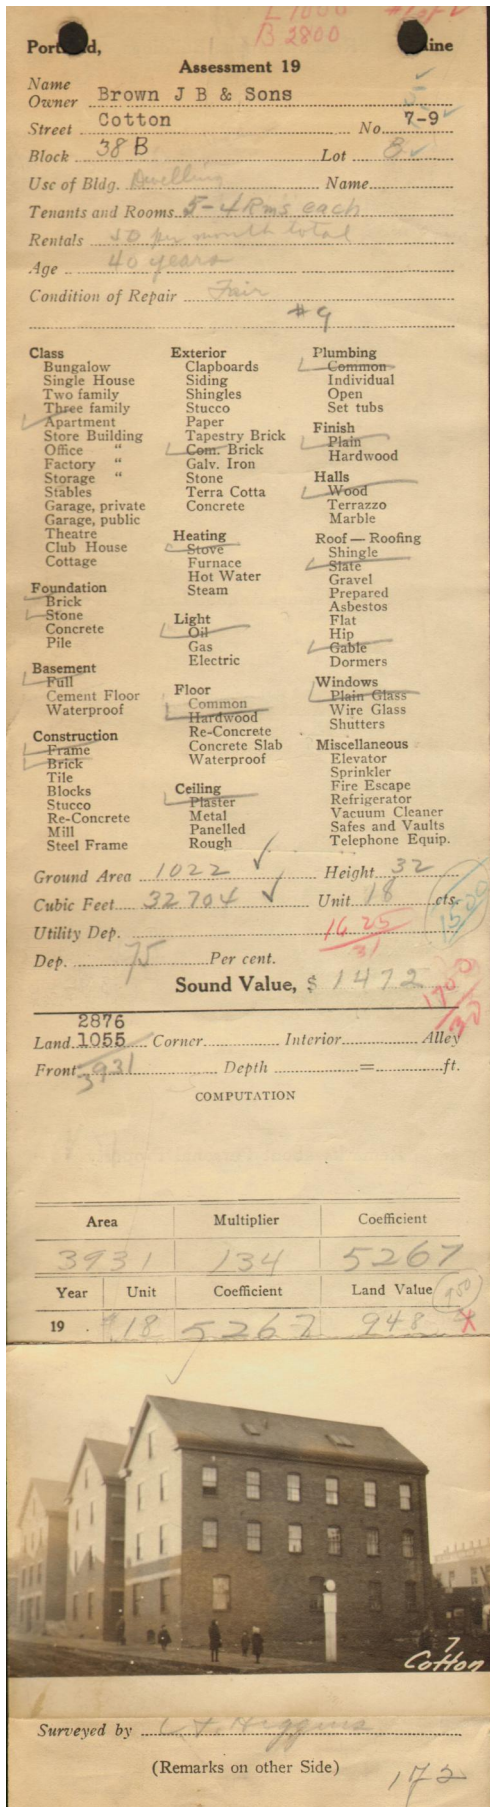 L 1000
B 2800
Portland, Maine
Assessment 19
Name
Owner Brown J B & Sons
Street Cotton No. 7-9
Block 38 B Lot 8
Use of Bldg. Dwelling Name
Tenants and Rooms 5-4 Rms each
Rentals 50 per month total
Age 40 years
Condition of Repair Fair
#9
Class
Bungalow
Single House
Two family
Three family
Apartment
Store Building
Office "
Factory "
Storage "
Stables
Garage, private
Garage, public
Theatre
Club House
Cottage
Foundation
Brick
Stone
Concrete
Pile
Basement
Full
Cement Floor
Waterproof
Construction
Frame
Brick
Tile
Blocks
Stucco
Re-Concrete
Mill
Steel Frame
Exterior
Clapboards
Siding
Shingles
Stucco
Paper
Tapestry Brick
Com. Brick
Galv. Iron
Stone
Terra Cotta
Concrete
Heating
Stove
Furnace
Hot Water
Steam
Light
Oil
Gas
Electric
Floor
Common
Hardwood
Re-Concrete
Concrete Slab
Waterproof
Ceiling
Plaster
Metal
Panelled
Rough
Plumbing
Common
Individual
Open
Set tubs
Finish
Plain
Hardwood
Halls
Wood
Terrazzo
Marble
Roof — Roofing
Shingle
Slate
Gravel
Prepared
Asbestos
Flat
Hip
Gable
Dormers
Windows
Plain Glass
Wire Glass
Shutters
Miscellaneous
Elevator
Sprinkler
Fire Escape
Refrigerator
Vacuum Cleaner
Safes and Vaults
Telephone Equip.
Ground Area 1022 Height 32
Cubic Feet 32704 Unit 18 cts.
1500
Utility Dep. 1625
31
Dep. 75 Per cent.
Sound Value, $ 1472
1900
30
2876
Land 1055 Corner Interior Alley
Front 3931 Depth = ft.
COMPUTATION
Area Multiplier Coefficient
3931 134 5267
Year Unit Coefficient Land Value 950
19 . $18 5267 948
7
Cotton
Surveyed by Higgins
(Remarks on other Side)
172